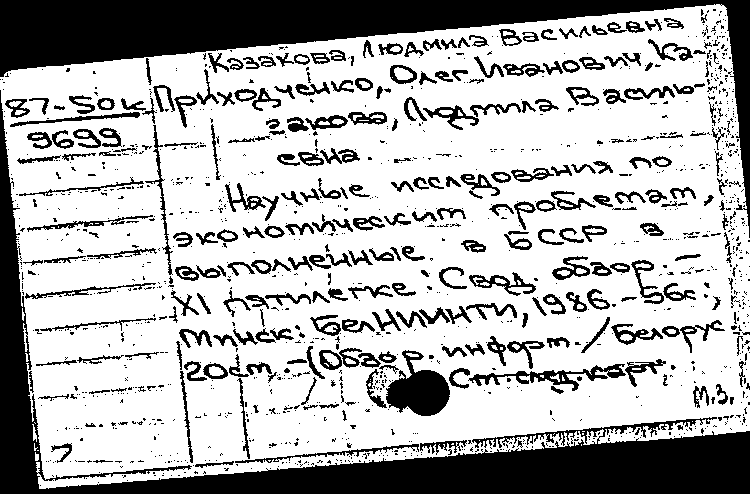 Казакова, Людмила Васильевна
87-50к
9699
Приходченко, Олег Иванович, Ка-
закова, Людмила Василь-
евна.
Научные исследования по
экономическим проблемам,
выполненные в БССР в
XI пятилетке: Свод. обзор. —
Минск: БелНИИНТИ, 1986. - 56с.;
20см. - (Обзор. информ. / Белорус
См. след. карт.
М.З.
7